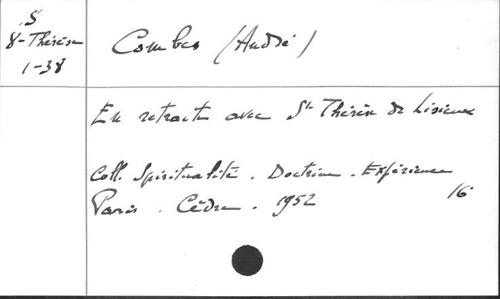 S
8-Thérèse
1-38
Combes (André)
En retraite avec Ste Thérèse de Lisieux
Coll. Spiritualité. Doctrine. Expérience
Paris. Cèdre. 1952 16